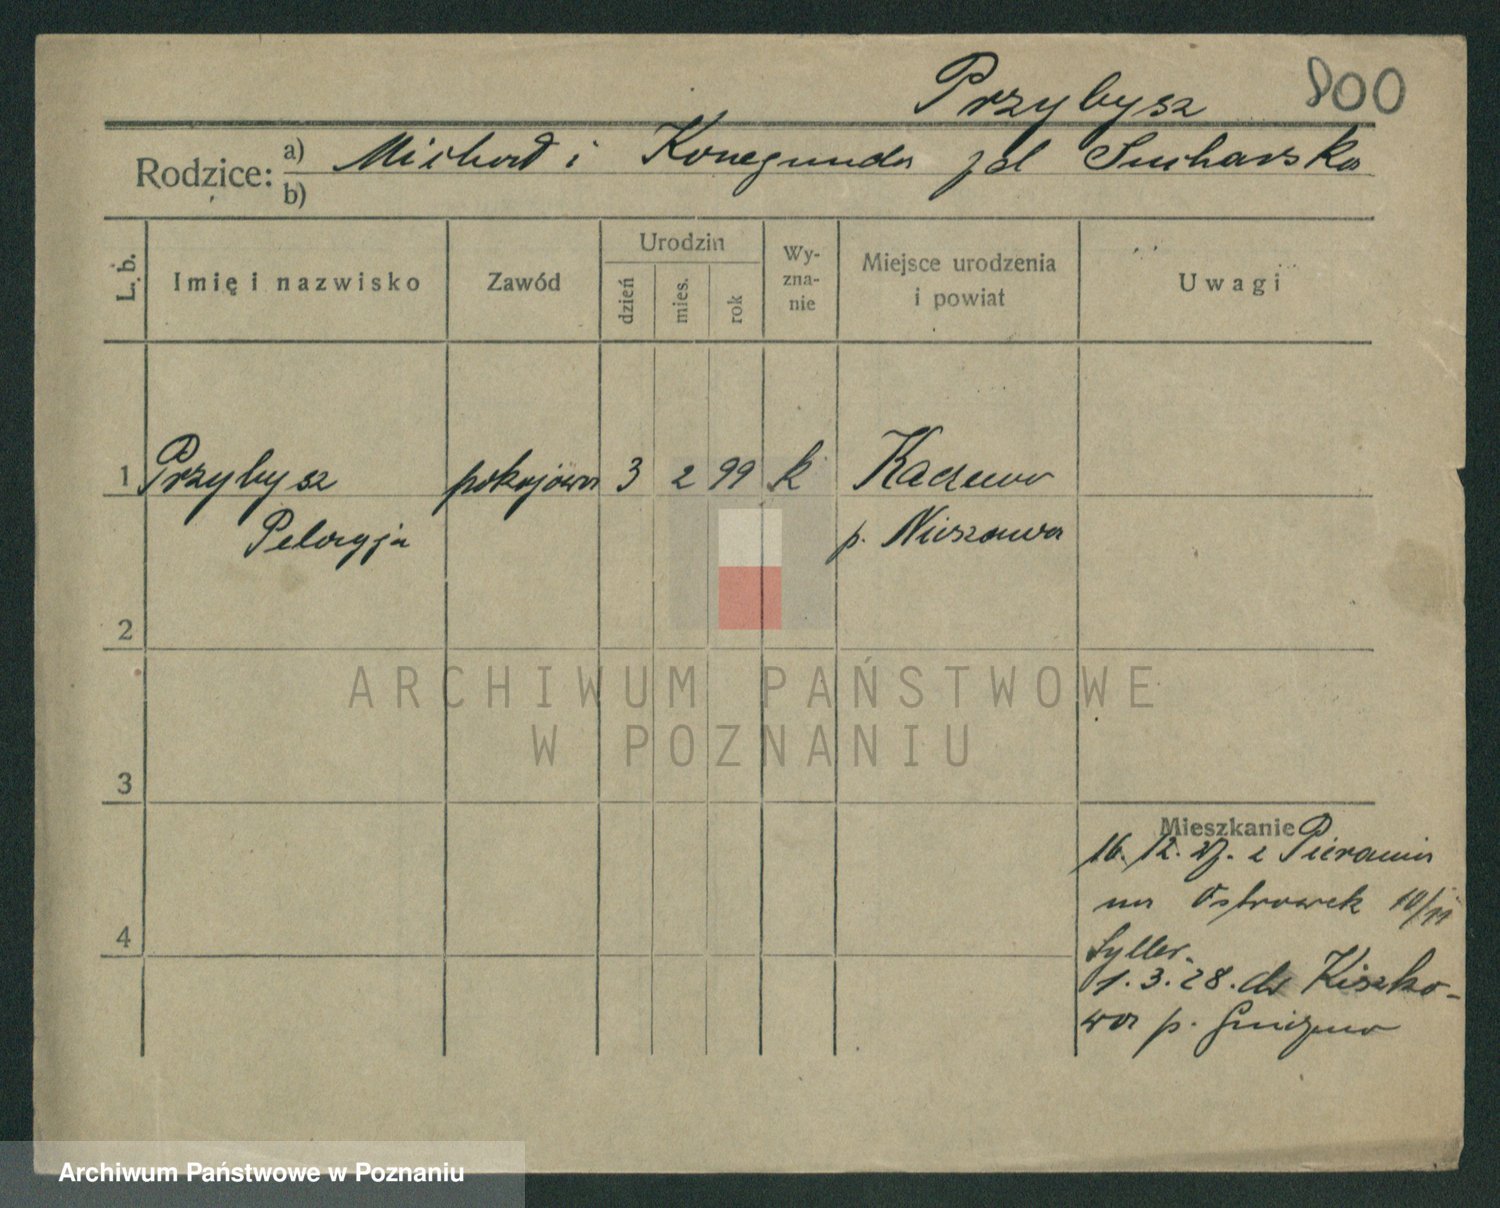 Przybysz 800
Rodzice: a) Michał i Konegunda jd Sucharska
b)
L. b.
Imię i nazwisko
Zawód
Urodzin
dzień
mies.
rok
Wy-
zna-
nie
Miejsce urodzenia
i powiat
Uwagi
1 Przybysz pokojówa 3 2 99 k Kaczewo
Pelagja p. Nieszawa
2
3
4
Mieszkanie
16. 12. 27. z
na Ostrówek 10/11
1. 3. 28. do Kiszko-
wa p. Gniezno
ARCHIWUM PAŃSTWOWE
W POZNANIU
Archiwum Państwowe w Poznaniu